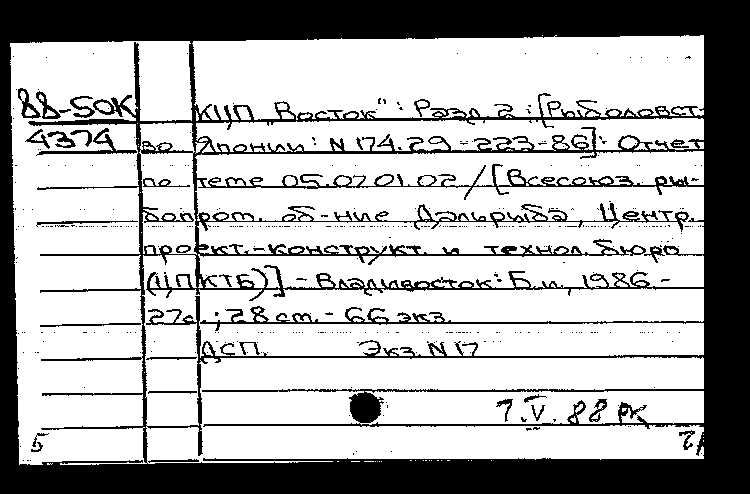 88-50К КЦП „Восток": Разд. 2 : [Рыболовст-
4374 во Японии: N 174.29-223-86]: Отчет
по теме 05.07.01.02 / [Всесоюз. ры-
бопром. об-ние Дальрыба, Центр.
проект.-конструкт. и технол. бюро
(ЦПКТБ)] - Владивосток: Б.и., 1986.-
27с.; 28 см. - 66 экз.
ДСП. Экз. N 17
7.V.88
5